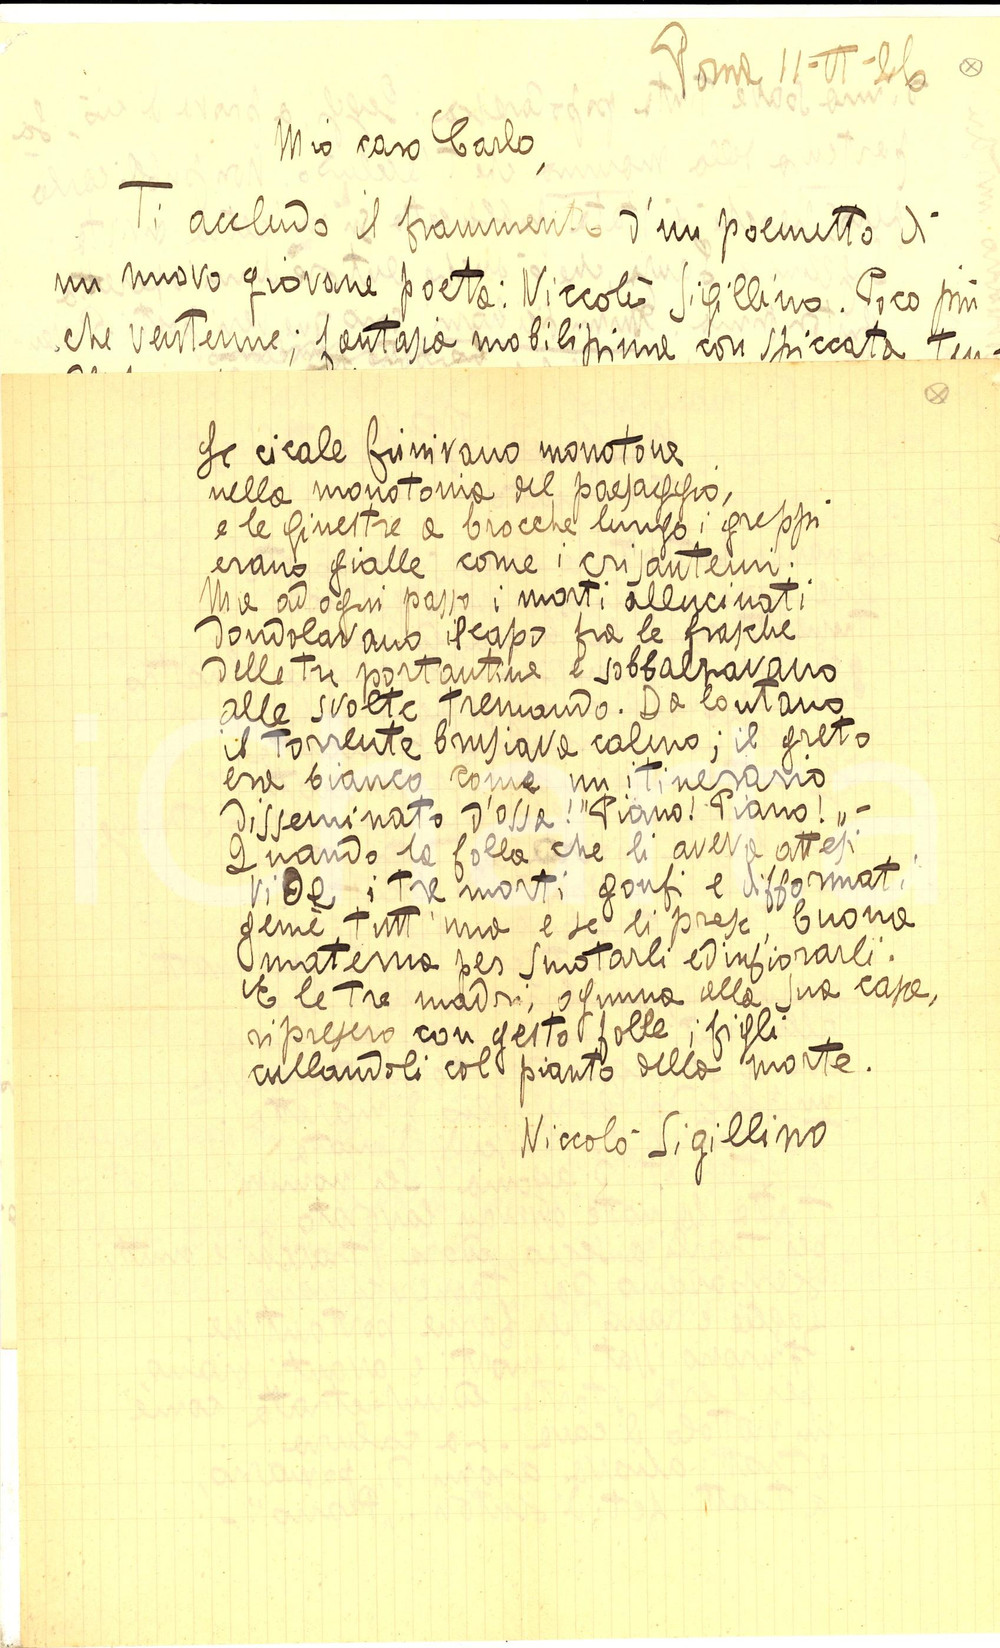 Roma 11-II-26
Mio caro Carlo,
Ti accludo il frammento d'un poemetto di
un nuovo giovane poeta: Niccolò Sigillino. Poco più
che ventenne; fantasia mobilissima con spiccata ten-
Le cicale frinivano monotone
nella monotonia del paesaggio,
e le ginestre a brocche lungo i greppi
erano gialle come i crisantemi.
Ma ad ogni passo i morti allucinati
dondolavano il capo fra le frasche
delle tre portantine e sobbalzavano
alle svolte tremando. Da lontano
il torrente brusiava calmo; il greto
era bianco come un itinerario
disseminato d'ossa! "Piano! Piano!" -
Quando la folla che li aveva attesi
vide i tre morti gonfi e difformati
gemè tutt'una e se li prese, buona
materna per smotarli ed infiorarli.
E le tre madri, ognuna alla sua casa,
ripresero con gesto folle i figli
cullandoli col pianto della morte.
Niccolò Sigillino